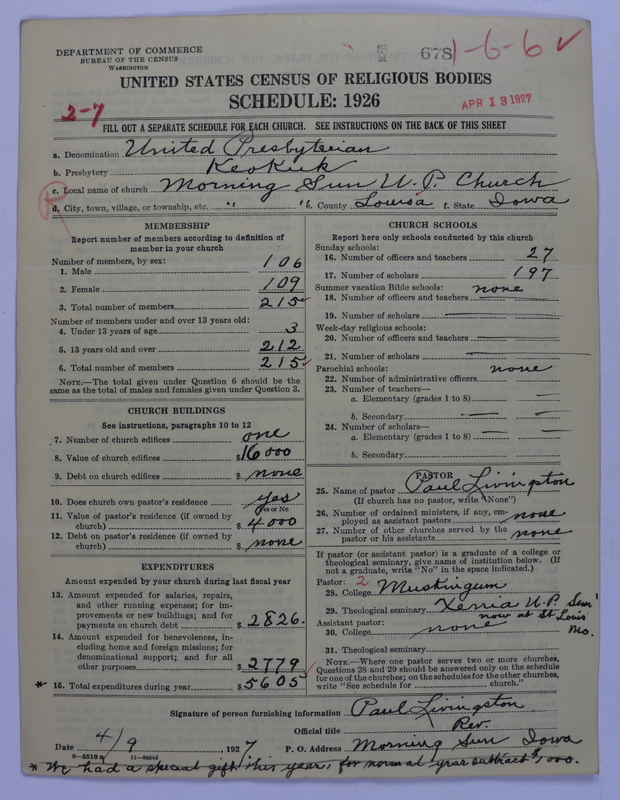 DEPARTMENT OF COMMERCE
BUREAU OF THE CENSUS
WASHINGTON
678
1-6-6 ✓
UNITED STATES CENSUS OF RELIGIOUS BODIES
SCHEDULE: 1926
2-7
APR 13 1927
FILL OUT A SEPARATE SCHEDULE FOR EACH CHURCH. SEE INSTRUCTIONS ON THE BACK OF THIS SHEET
a. Denomination United Presbyterian
b. Presbytery Keokuk
c. Local name of church Morning Sun U.P. Church
d. City, town, village, or township, etc. " " e. County Louisa f. State Iowa
MEMBERSHIP
Report number of members according to definition of
member in your church
Number of members, by sex:
1. Male 106
2. Female 109
3. Total number of members 215 ✓
Number of members under and over 13 years old:
4. Under 13 years of age 3
5. 13 years old and over 212
6. Total number of members 215 ✓
NOTE.—The total given under Question 6 should be the
same as the total of males and females given under Question 3.
CHURCH BUILDINGS
See instructions, paragraphs 10 to 12
7. Number of church edifices one
8. Value of church edifices $16000
9. Debt on church edifices $ none
10. Does church own pastor's residence yes
Yes or No
11. Value of pastor's residence (if owned by
church) $ 4000
12. Debt on pastor's residence (if owned by
church) $ none
EXPENDITURES
Amount expended by your church during last fiscal year
13. Amount expended for salaries, repairs,
and other running expenses; for im-
provements or new buildings; and for
payments on church debt $ 2826.
14. Amount expended for benevolences, in-
cluding home and foreign missions; for
denominational support; and for all
other purposes $2779
* 15. Total expenditures during year $5605 ✓
CHURCH SCHOOLS
Report here only schools conducted by this church
Sunday schools:
16. Number of officers and teachers 27
17. Number of scholars 197
Summer vacation Bible schools: none
18. Number of officers and teachers
19. Number of scholars
Week-day religious schools:
20. Number of officers and teachers
21. Number of scholars
Parochial schools: none
22. Number of administrative officers
23. Number of teachers—
a. Elementary (grades 1 to 8)
b. Secondary
24. Number of scholars—
a. Elementary (grades 1 to 8)
b. Secondary
PASTOR
25. Name of pastor Paul Livingston
(If church has no pastor, write "None")
26. Number of ordained ministers, if any, em-
ployed as assistant pastors none
27. Number of other churches served by the
pastor or his assistants none
If pastor (or assistant pastor) is a graduate of a college or
theological seminary, give name of institution below. (If
not a graduate, write "No" in the space indicated.)
Pastor: 2
28. College Muskingum
29. Theological seminary Xenia U.P. Sem'
now at St Louis
Mo.
Assistant pastor:
30. College none
31. Theological seminary
NOTE.—Where one pastor serves two or more churches,
Questions 28 and 29 should be answered only on the schedule
for one of the churches; on the schedules for the other churches,
write "See schedule for church."
Signature of person furnishing information Paul Livingston
Official title Rev.
Date 4/9, 1927 P. O. Address Morning Sun Iowa
8—5518a 11—9584d
* We had a special gift this year, for normal year subtract $1,000.